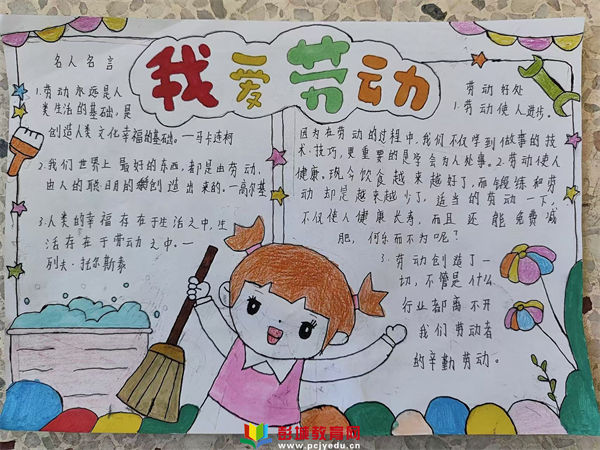 我爱劳动
名人名言
1.劳动永远是人
类生活的基础，是
创造人类文化幸福的基础。—马卡连柯
2.我们世界上最好的东西，都是由劳动，
由人的聪明的创造出来的。—高尔基
3.人类的幸福存在于生活之中，生
活存在于劳动之中。—
列夫·托尔斯泰
劳动好处
1.劳动使人进步。
因为在劳动的过程中，我们不仅学到做事的技
术、技巧，更重要的是学会为人处事。2.劳动使人
健康。现今饮食越来越好了，而锻练和劳
动却是越来越少了，适当的劳动一下，
不仅使人健康长寿，而且还能免费减
肥，何乐而不为呢？
3.劳动创造了一
切，不管是什么
行业都离不开
我们劳动者
的辛勤劳动。
彭城教育网
www.pcjyedu.cn